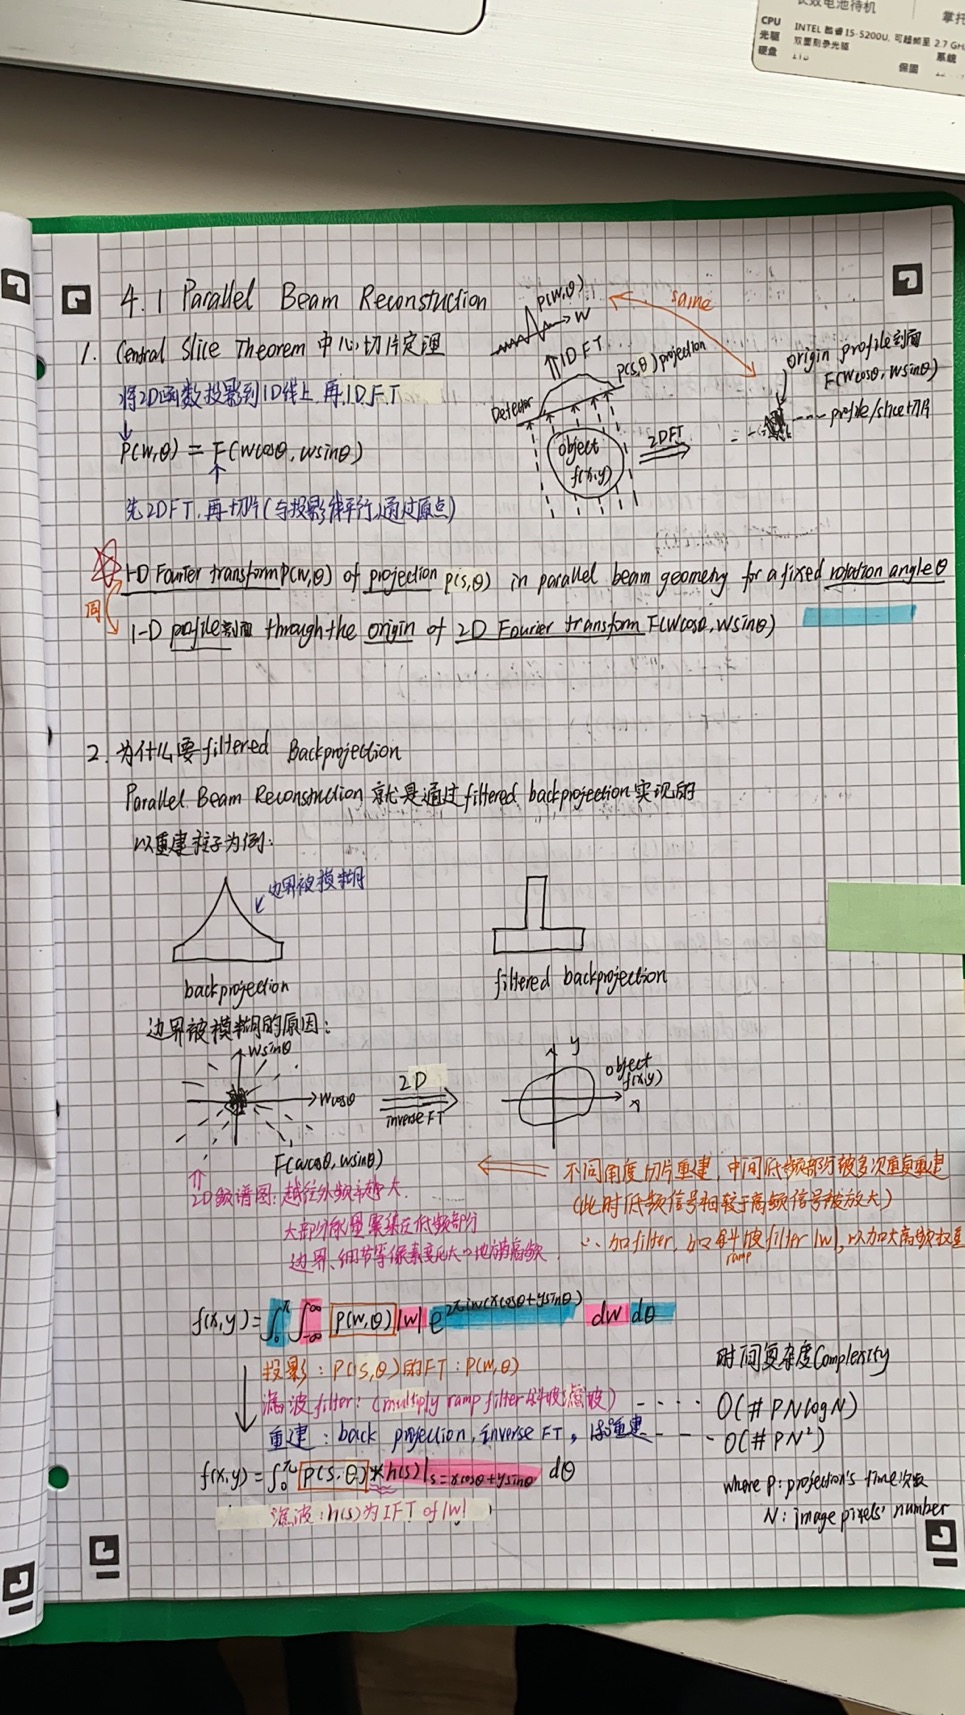 长效电池待机
CPU INTEL 酷睿 I5-5200U, 可超频至 2.7 GH
光驱 双显刻录光驱
硬盘
系统
保固
4.1 Parallel Beam Reconstuction
1. Central Slice Theorem 中心切片定理
将2D函数投影到1D线上,再1D.F.T
P(w,θ) = F(wcosθ, wsinθ)
先2DFT,再切片(与投影线平行)通过原点)
P(w,θ)
w
↑1D FT
p(s,θ) projection
Detector
object
f(x,y)
2DFT
same
origin profile剖面
F(wcosθ, wsinθ)
profile/slice切片
1-D Fourier transform P(w,θ) of projection p(s,θ) in parallel beam geometry for a fixed rotation angle θ
同
1-D profile剖面 through the origin of 2D Fourier transform F(wcosθ, wsinθ)
2. 为什么要filtered Backprojection
Parallel Beam Reconstruction 就是通过filtered backprojection实现的
以重建柱子为例:
边界被模糊
backprojection
filtered backprojection
边界被模糊的原因:
wsinθ
wcosθ
F(wcosθ, wsinθ)
2D
inverse FT
y
object
f(x,y)
x
2D频谱图:越往外频率越大.
大部分能量聚集在低频部分
边界、细节等像素变化大的地方高频
不同角度切片重建,中间低频部分被多次重复重建
(此时低频信号相较于高频信号被放大)
∴加filter, 如斜坡filter |w|,以加大高频权重
ramp
f(x,y)=∫₀^π ∫₋∞^∞ P(w,θ)|w| e^{2πiw(xcosθ+ysinθ)} dw dθ
投影: P(s,θ)的FT: P(w,θ)
滤波filter: (multiply ramp filter斜坡滤波) ---- O(#PNlogN)
重建: back projection, inverse FT, 重建 --- O(#PN²)
时间复杂度Complexity
f(x,y)=∫₀^π p(s,θ)*h(s)|s=xcosθ+ysinθ dθ
滤波:h(s)为IFT of |w|
where P: projection's time次数
N: image pixels' number